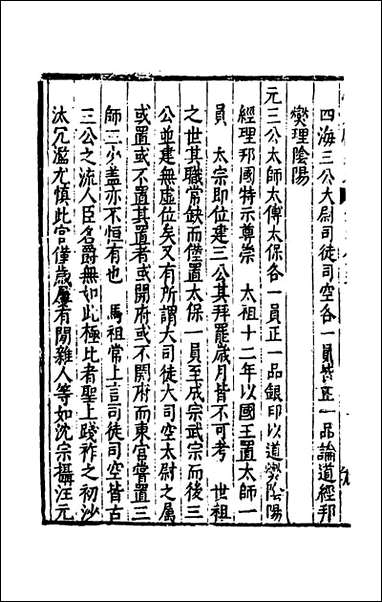 四海三公大尉司徒司空各一員共正一品論道經邦
燮理陰陽
元三公太師太傅太保各一員正一品銀印以道燮陰陽
經理邦國特示尊崇　太祖十二年以國王置太師一
員　太宗即位建三公其拜罷歲月皆不可考　世祖
之世其職常缺而僅置太保一員至成宗武宗而後三
公並建無虛位矣又有所謂大司徒大司空太尉之属
或置或不置其置者或開府或不開府而東宮嘗置三
師三少盖亦不恒有也　馬祖常上言司徒司空皆古
三公之流人臣名爵無如此極比者聖上踐祚之初沙
汰冗濫尤慎此官僅歲屢有閒雜人等如沈宗攝汪元